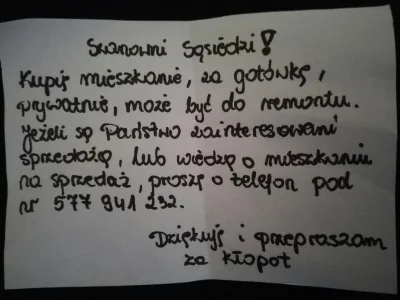 Szanowni Sąsiedzi!
Kupię mieszkanie, za gotówkę,
prywatnie, może być do remontu.
Jeżeli są Państwo zainteresowani
sprzedażą, lub wiedzą o mieszkaniu
na sprzedaż, proszę o telefon pod
nr 577 941 232.
Dziękuję i przepraszam
za kłopot